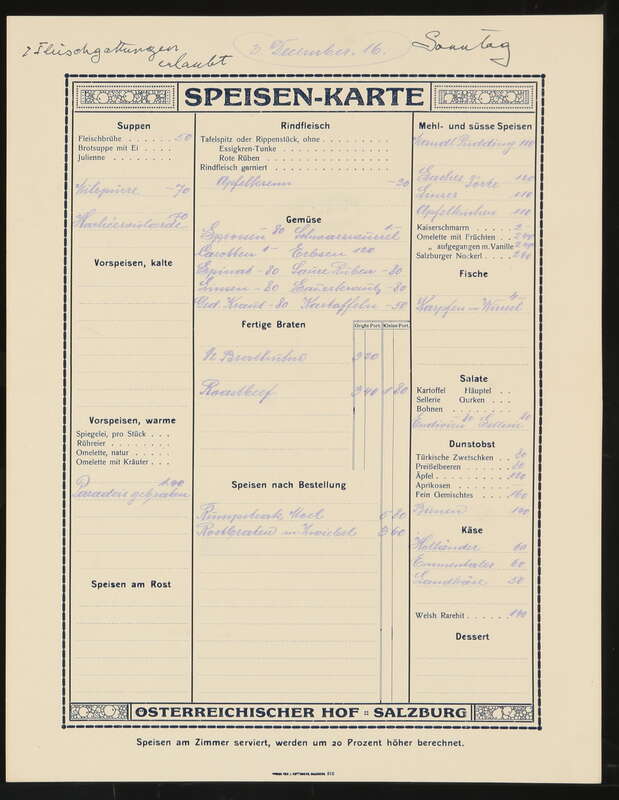 2 Fleischgattungen
erlaubt
3. Dezember. 16.
Sonntag
SPEISEN-KARTE
Suppen
Fleischbrühe . . . . . . . 50
Brotsuppe mit Ei . . . .
Julienne . . . . . . . .
-70
70
Vorspeisen, kalte
Vorspeisen, warme
Spiegelei, pro Stück . . .
Rühreier . . . . . . . .
Omelette, natur . . . . .
Omelette mit Kräuter . . .
Paradeis gebraten
Speisen am Rost
Rindfleisch
Tafelspitz oder Rippenstück, ohne . . . . . . . .
Essigkren-Tunke . . . . . . . .
Rote Rüben . . . . . . . .
Rindfleisch garniert . . . . . . . .
Apfelkrenn -20
Gemüse
80
Carotten Erbsen 120
Espinat - 80 Saure Rüben - 80
Linsen - 80 Sauerkraut - 80
Ged. Kraut - 80 Kartoffeln - 50
Fertige Braten
Große Port. Kleine Port.
3 20
Roastbeef 3 40 1 80
Speisen nach Bestellung
Rumpsteak 6 80
Rostbraten m. Zwiebel 3 60
Mehl- und süsse Speisen
Pudding 110
Sacher Torte 120
Linzer " 110
Apfelkuchen 110
Kaiserschmarrn . . . . . 2
Omelette mit Früchten . . 240
„ aufgegangen m. Vanille 240
Salzburger Nockerl . . . . 240
Fische
Karpfen
Salate
Kartoffel Häuptel . .
Sellerie Gurken . . .
Bohnen . . . . . . . .
Endivien - 80 Sellerie 80
Dunstobst
Türkische Zwetschken . . 80
Preißelbeeren . . . . . 80
Äpfel . . . . . . . . 120
Aprikosen . . . . . . .
Fein Gemischtes . . . . 160
Birnen 140
Käse
Holländer 60
Emmentaler 60
50
Welsh Rarebit . . . . . . 140
Dessert
ÖSTERREICHISCHER HOF :: SALZBURG
Speisen am Zimmer serviert, werden um 20 Prozent höher berechnet.